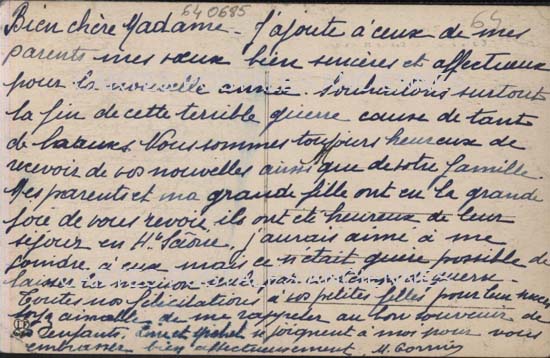 640685
64
Bien chère Madame - J'ajoute à ceux de mes
parents mes vœux bien sincères et affectueux
pour la nouvelle année. Souhaitons surtout
la fin de cette terrible guerre cause de tant
de Nous sommes toujours heureux de
recevoir de vos nouvelles ainsi que de votre famille.
Mes parents et ma grande fille ont eu la grande
joie de vous revoir, ils ont été heureux de leur
séjour en Hte Saône, j'aurais aimé à me
joindre à eux mais ce n'était guère possible de
laisser la maison
Toutes nos félicitations à vos petites filles pour leur succès
de me rappeler au bon souvenir de
enfants, et Michel se joignent à moi pour vous
embrasser bien affectueusement